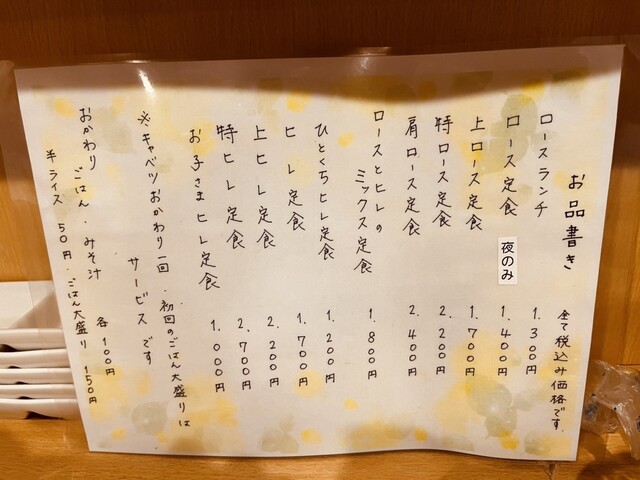 お品書き
全て税込み価格です
ロースランチ 1.300円
ロース定食 夜のみ 1.400円
上ロース定食 1.700円
特ロース定食 2.200円
肩ロース定食 2.400円
ロースとヒレの
ミックス定食 1.800円
ひとくちヒレ定食 1.200円
ヒレ定食 1.700円
上ヒレ定食 2.200円
特ヒレ定食 2.700円
お子さまヒレ定食 1.000円
※キャベツおかわり一回・初回のごはん大盛りは
サービスです
おかわり ごはん・みそ汁 各100円
半ライス 50円・ごはん大盛り 150円